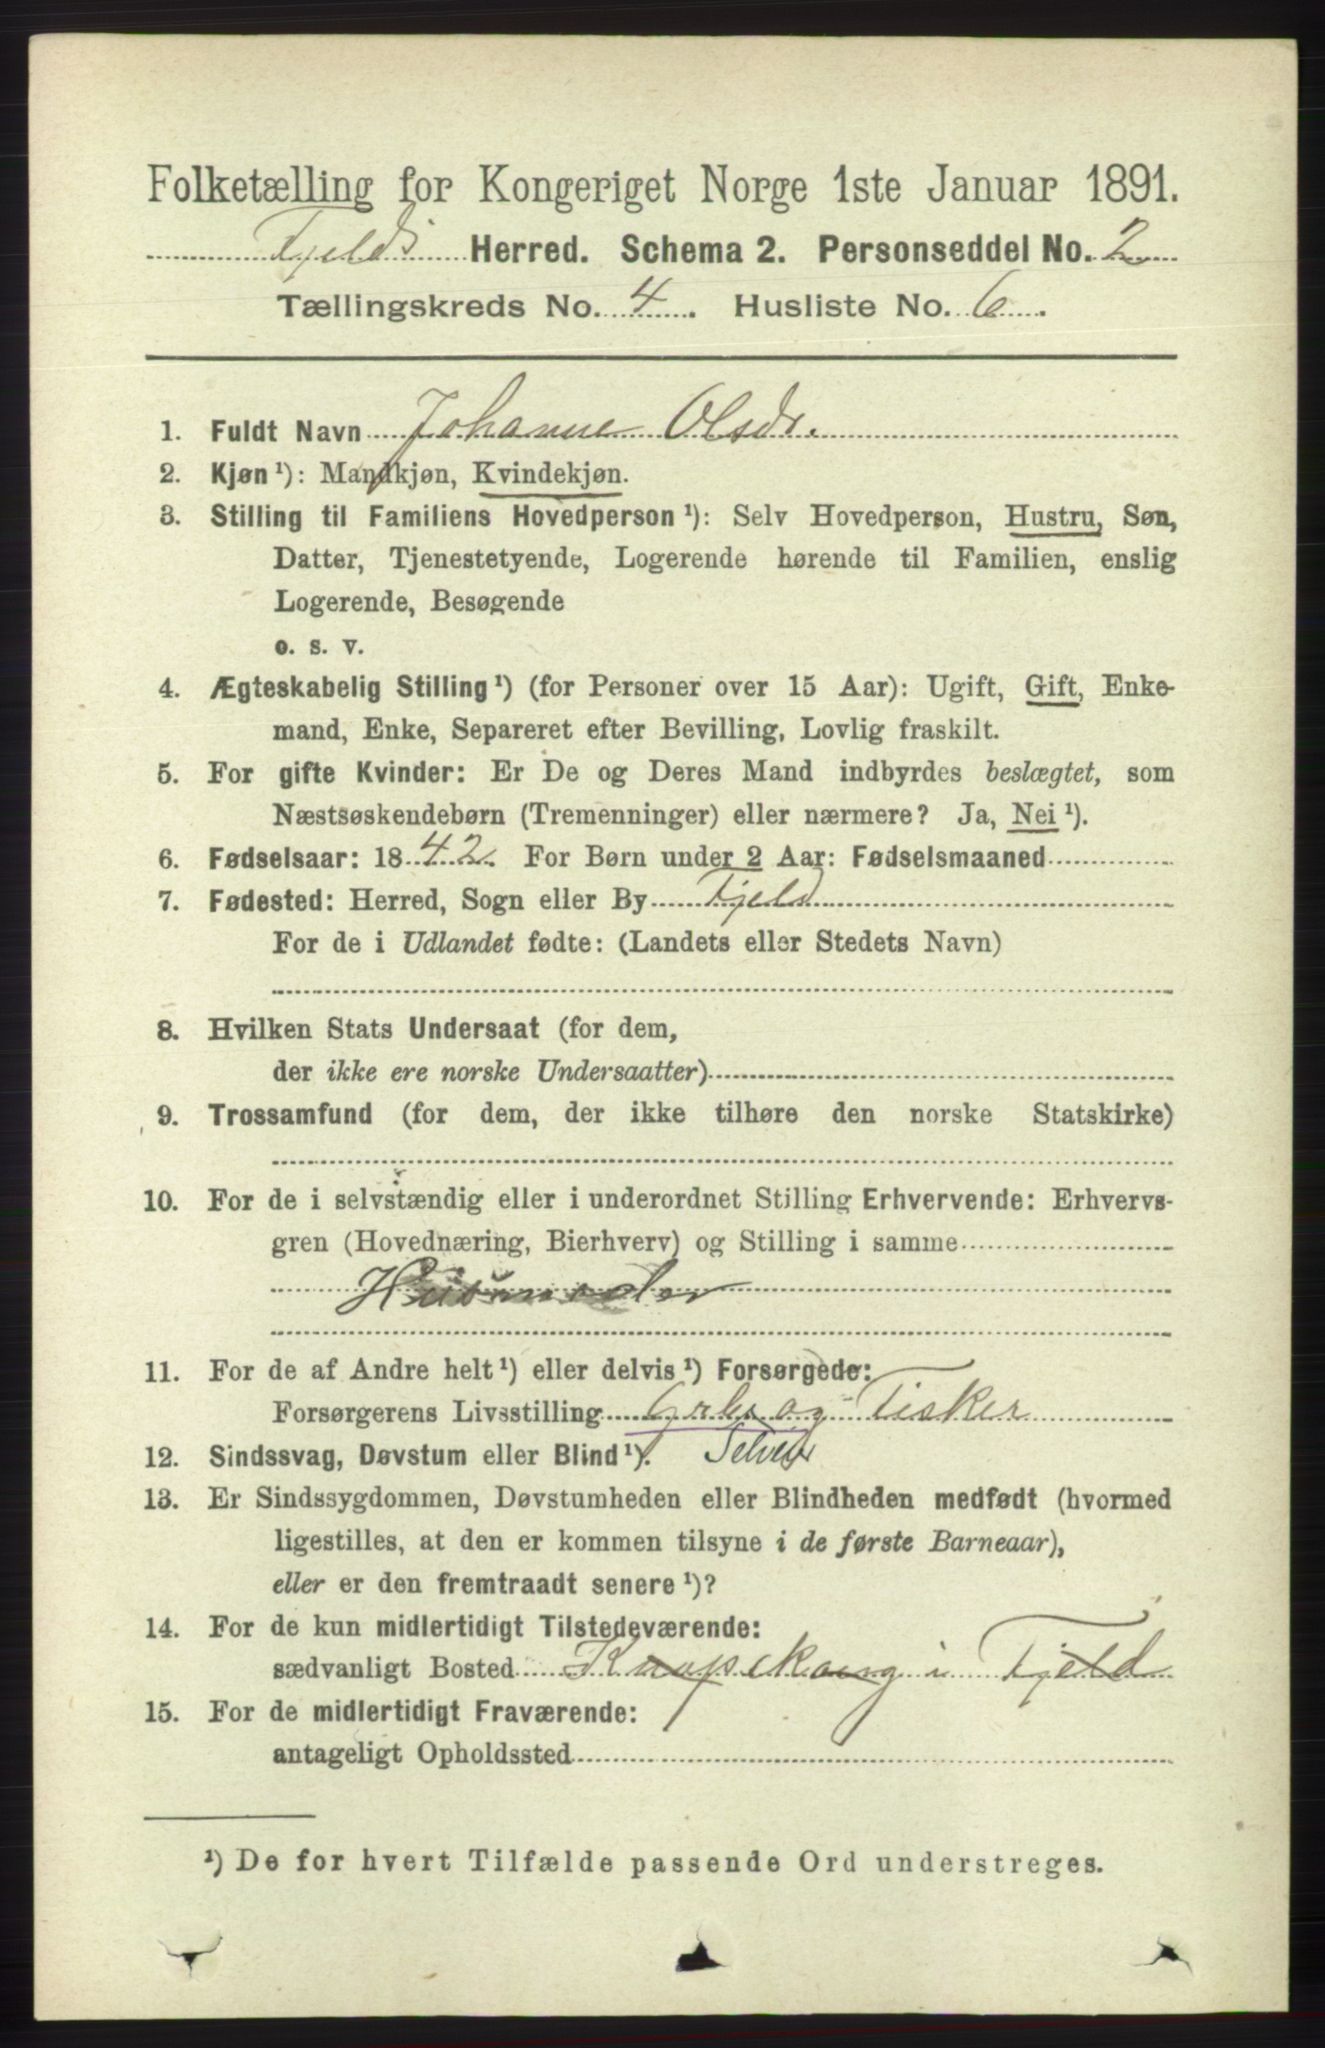 Folketælling for Kongeriget Norge 1ste Januar 1891.
Fjelds Herred. Schema 2. Personseddel No. 2
Tællingskreds No. 4. Husliste No. 6.
1. Fuldt Navn Johanne Olsdr.
2. Kjøn ¹): Mandkjøn, Kvindekjøn.
3. Stilling til Familiens Hovedperson ¹): Selv Hovedperson, Hustru, Søn,
Datter, Tjenestetyende, Logerende hørende til Familien, enslig
Logerende, Besøgende
o. s. v.
4. Ægteskabelig Stilling ¹) (for Personer over 15 Aar): Ugift, Gift, Enke-
mand, Enke, Separeret efter Bevilling, Lovlig fraskilt.
5. For gifte Kvinder: Er De og Deres Mand indbyrdes beslægtet, som
Næstsøskendebørn (Tremenninger) eller nærmere? Ja, Nei ¹).
6. Fødselsaar: 1842. For Børn under 2 Aar: Fødselsmaaned
7. Fødested: Herred, Sogn eller By Fjeld
For de i Udlandet fødte: (Landets eller Stedets Navn)
8. Hvilken Stats Undersaat (for dem,
der ikke ere norske Undersaatter)
9. Trossamfund (for dem, der ikke tilhøre den norske Statskirke)
10. For de i selvstændig eller i underordnet Stilling Erhvervende: Erhvervs-
gren (Hovednæring, Bierhverv) og Stilling i samme
Husmoder
11. For de af Andre helt ¹) eller delvis ¹) Forsørgede:
Forsørgerens Livsstilling og Fisker
12. Sindssvag, Døvstum eller Blind ¹). Selveier
13. Er Sindssygdommen, Døvstumheden eller Blindheden medfødt (hvormed
ligestilles, at den er kommen tilsyne i de første Barneaar),
eller er den fremtraadt senere ¹)?
14. For de kun midlertidigt Tilstedeværende:
sædvanligt Bosted Knapskoug i Fjeld
15. For de midlertidigt Fraværende:
antageligt Opholdssted
¹) De for hvert Tilfælde passende Ord understreges.